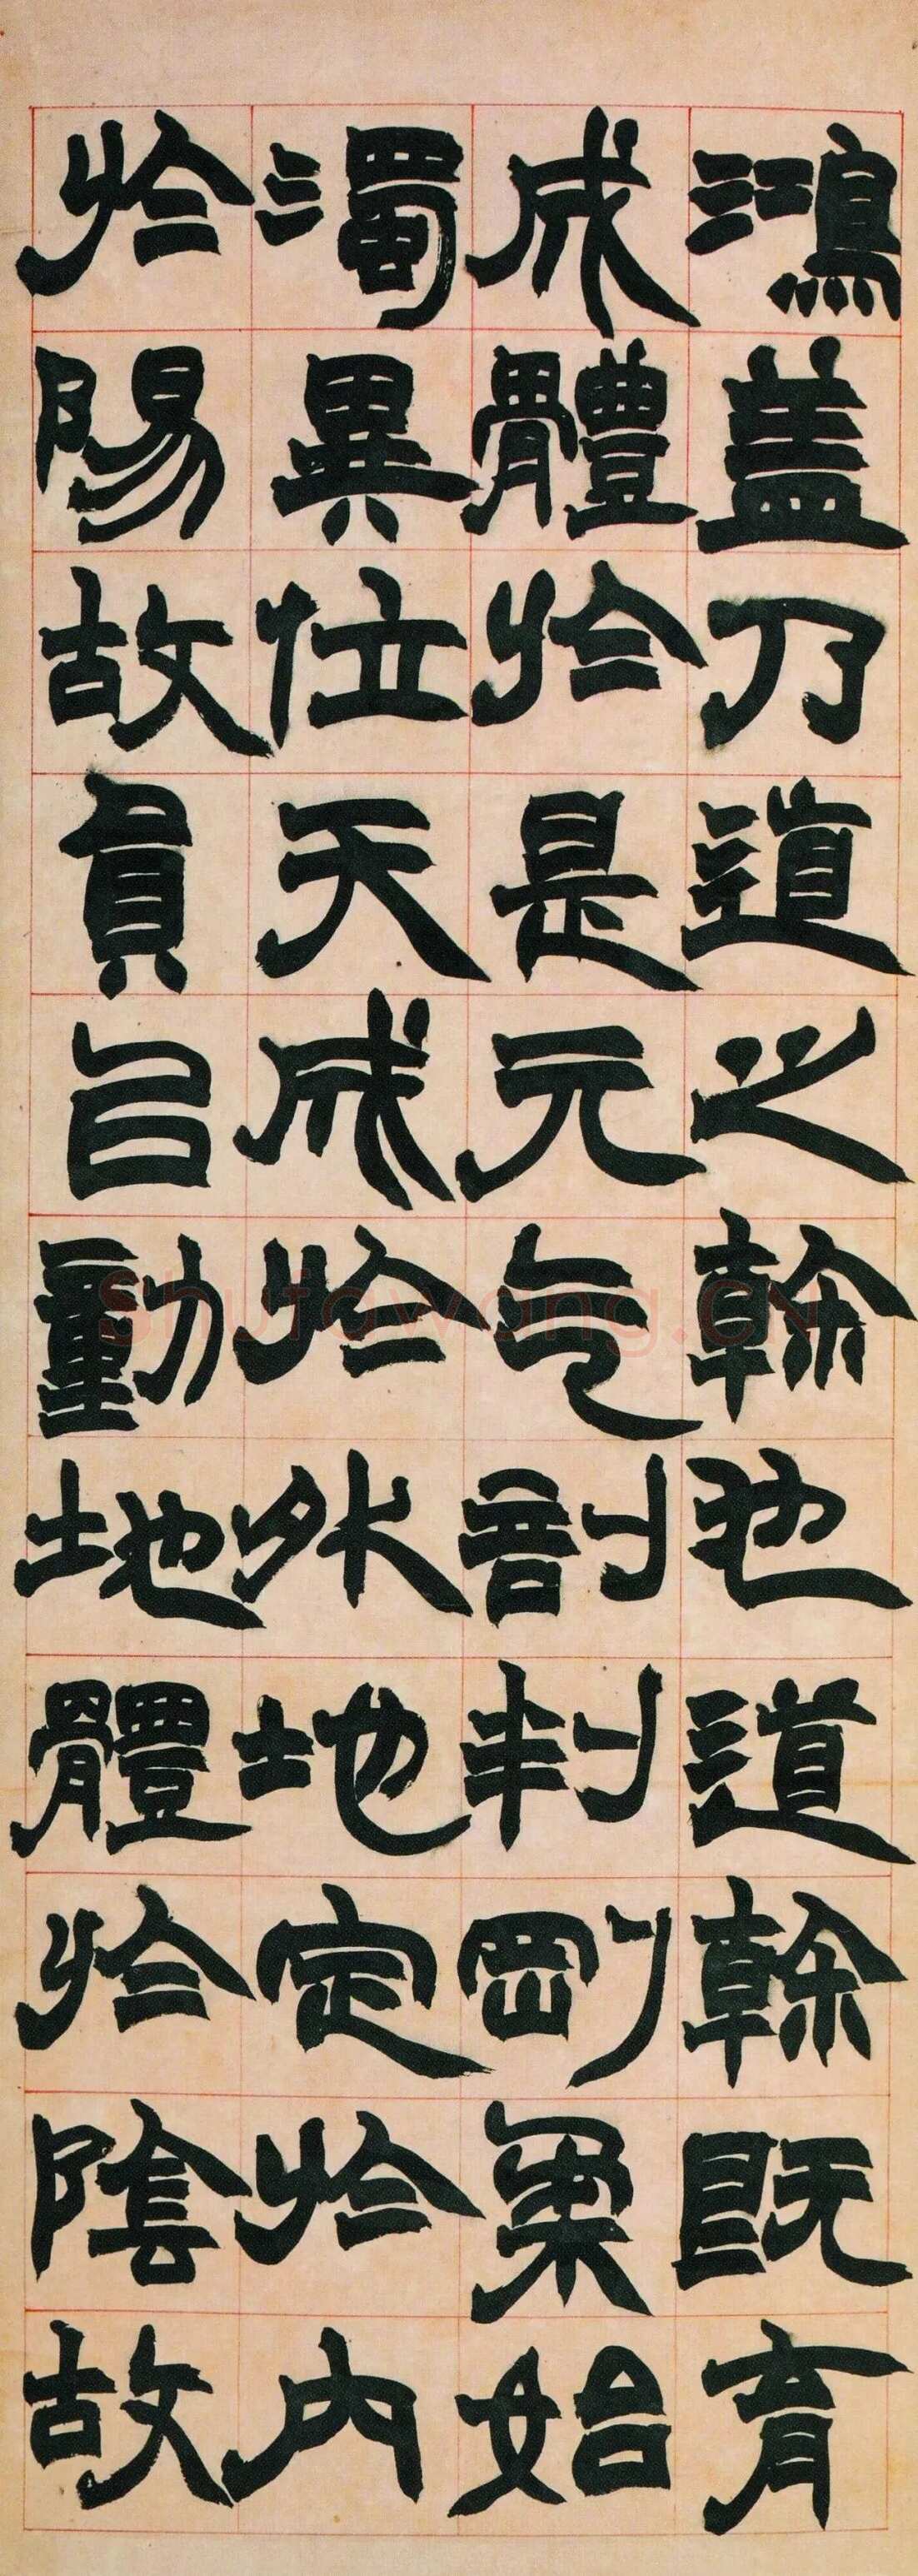 鴻盖乃道之榦也道榦既育
成體於是元气剖判剛柔始
濁異位天成於外地定於內
於陽故員㠯動地體於陰故
Shufawang.CN